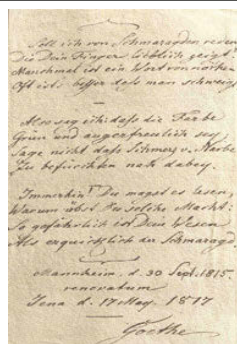 Soll ich von Smaragden reden
Die Dein Finger lieblich zeigt?
Manchmal ist ein Wort von nöthen
Oft ist's besser dass man schweigt.
Also sag ich: dass die Farbe
Grün und augerfreulich sey;
Sage nicht dass Schmerz u. Narbe
Zu befürchten nah dabey.
Immerhin! Du magst es lesen,
Warum übst Du solche Macht:
So gefährlich ist Dein Wesen
Als erquicklich der Schmaragd.
Mannheim. d. 30 Sept. 1815.
renovatum
Jena d. 17 May. 1817
Goethe